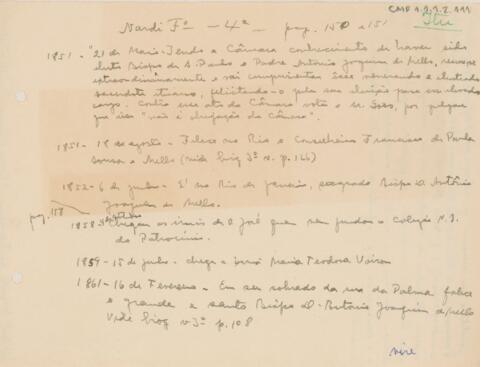 CMP 1.2.2.2.111
Itu
Nardi Fº - 4ª - pag. 150 e 151
1851 - "21 de Maio - Tendo a Câmara conhecimento de haver sido
eleito Bispo de S. Paulo o Padre Antônio Joaquim de Mello, reune-se
extraordinariamente e vai cumprimentar esse venerando e
sacerdote ituano, felicitando-o pela sua eleição para esse elevado
cargo. Contra esse ato da Câmara vota o sr. por julgar
que isso "não é obrigação da Câmara".
1851 - 18 de agosto - Falece no Rio o Conselheiro Francisco de Paula
Sousa e Mello (vide biog 3º v. p. 166)
1852 - 6 de junho - E' no Rio de Janeiro, sagrado Bispo D. Antônio
Joaquim de Mello.
pag. 158
1858 Chegam as irmãs de S. José que vem fundar o Colegio N. S.
do Patrocinio.
1859 - 15 de junho - chega a irmã Maria Teodora Voiron
1861 - 16 de Fevereiro - Em seu sobrado da rua da Palma falece
o grande e santo Bispo D. Antonio Joaquim de Mello
Vide biog v 3º p. 108
vire